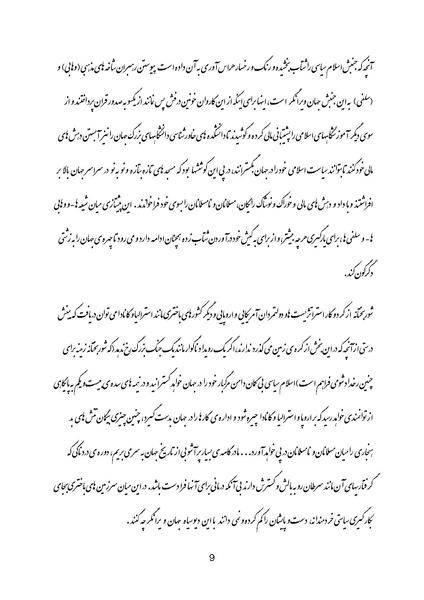 آنچه که جنبش اسلام سیاسی را شتاب بخشیده و رنگ و رخسار هراس آوری به آن داده است پیوستن رهبران شاخه های مذهبی (وهابی) و
(سلفی) به این جنبش جهان ویرانگر است، اینها برای اینکه از این کاروان خونین درفش پس نمانند از یکسو به صدور قران پرداختند و از
سوی دیگر آموزشگاههای اسلامی را پشتیبانی مالی کرده و کوشیدند تا دانشکده های خاورشناسی دانشگاههای بزرگ جهان را نیز آبستن دهش های
مالی خود کنند تا بتوانند سیاست اسلامی خود را در جهان بگسترانند، در پی این کوششها بود که مسجدهای تازه بتازه و نو به نو در سراسر جهان بالا بر
افراشتند و با داد و دهش های مالی و خوراک و نوشاک رایگان، مسلمانان و نامسلمانان را بسوی خود فراخواندند. این همتازی میان شیعه ها- و وهابی
ها- و سلفی ها، برای یارگیری هر چه بیشتر، و از برای به کیش خود در آوردن شتاب زده همچنان ادامه دارد و می رود تا چهره ی جهان را به زشتی
دگرگون کند.
شوربختانه از کرد و کار استراتژیست ها و دولتمردان آمریکایی و اروپایی و دیگر کشورهای باختری مانند استرالیا و کانادا می توان دریافت که بینش
درستی از آنچه که در این بخش از کره ی زمین می گذرد ندارند، اگر یک رویداد ناگوار مانند یک جنگ بزرگ رخ ندهد (که شوربختانه زمینه برای
چنین رخداد شومی فراهم است) اسلام سیاسی بی گمان دامن مرگبار خود را در جهان خواهد گسترانید و در نیمه های سده ی بیست و یکم به پایگاهی
از توانمندی خواهد رسید که بر اروپا و استرالیا و کانادا چیره شود و اداره ی کارها را در جهان بدست گیرد، چنین چیزی بیگمان تنش های بد
هنجاری را میان مسلمانان و نامسلمانان در پی خواهد آورد... ما در کاسه ی بسیار پر آشوبی از تاریخ جهان به سر می بریم، دوره ی دردناکی که
گرفتاریهای آن مانند سرطان رو به بالش و گسترش دارند بی آنکه درمانی برای آنها فرا دست باشد. در این میان سرزمین های باختری بجای
بکارگیری سیاستی خردمندانه، دست و پایشان را گم کرده و نمی دانند با این دیو سیاه جهان ویرانگر چه کنند.
9